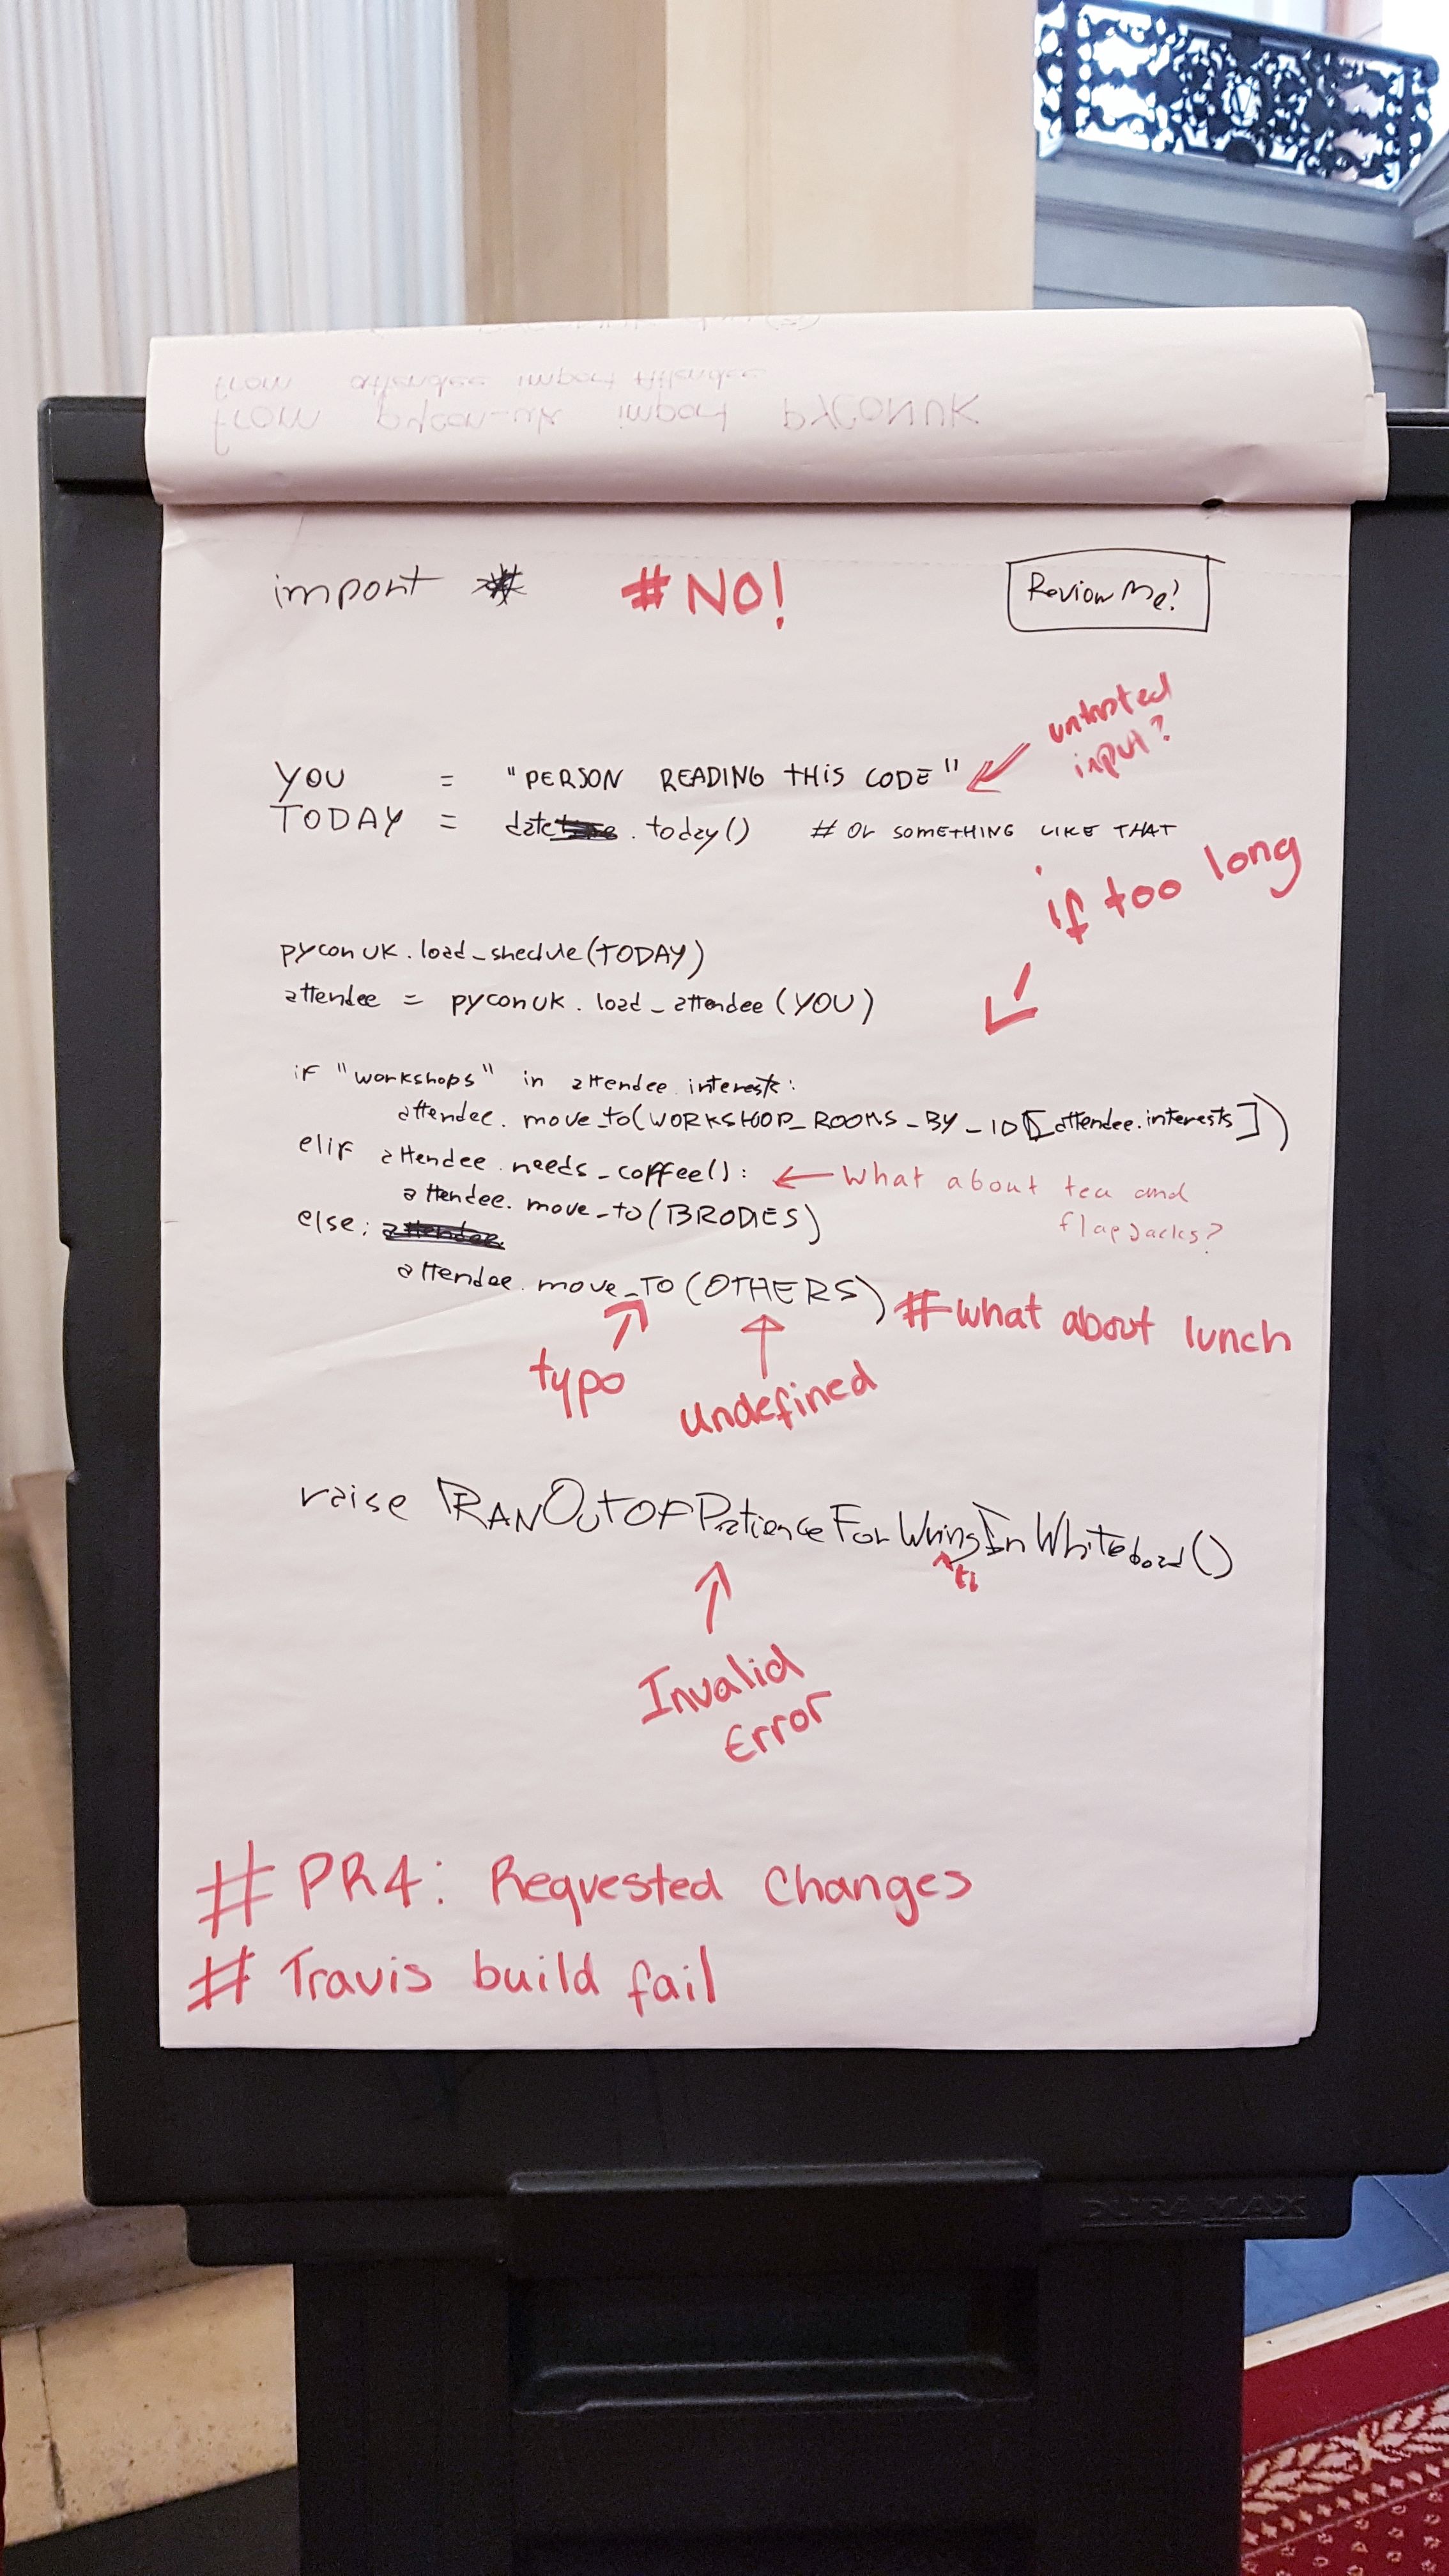 from attendee import Attendee
from pycon-uk import PYCONUK
import * # NO!
Review Me!
untrusted
input?
YOU = "PERSON READING THIS CODE"
TODAY = date.today() # Or SOMETHING LIKE THAT
if too long
pyconUK.load_shedule(TODAY)
attendee = pyconUK.load_attendee(YOU)
if "workshops" in attendee.interests:
attendee.move_to(WORKSHOP_ROOMS_BY_ID[attendee.interests])
elif attendee.needs_coffee(): ← What about tea and
flapjacks?
attendee.move_to(BRODIES)
else:
attendee.move_TO(OTHERS) # what about lunch
typo
undefined
raise IRANOUTOFPatienceForWringInWhiteboard()
ti
Invalid
Error
# PR4: Requested Changes
# Travis build fail
DURAMAX